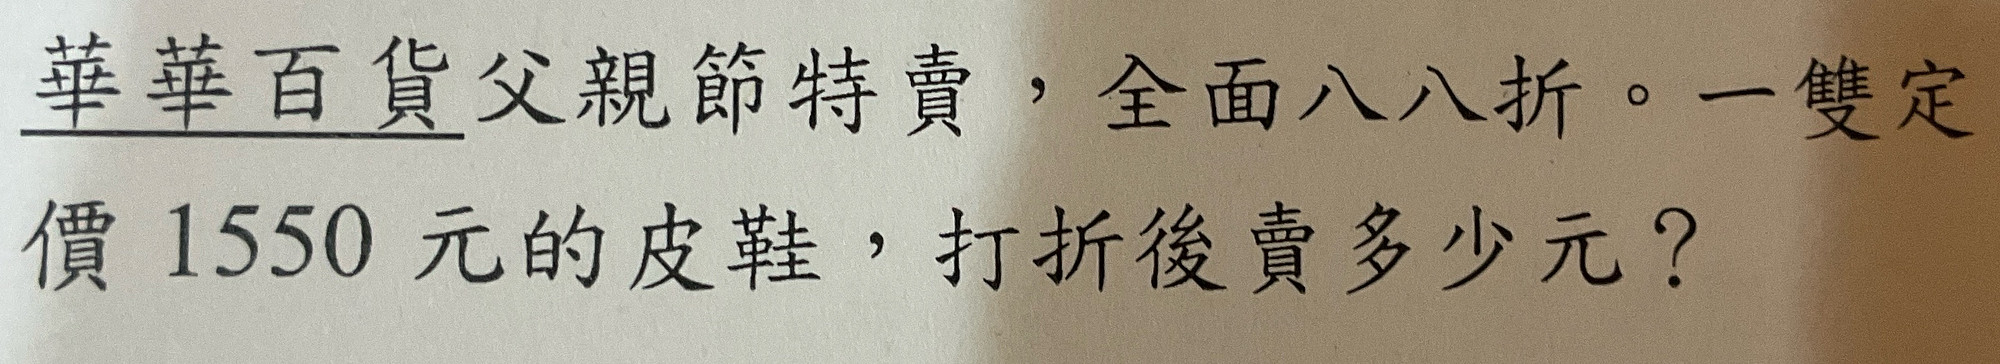 華華百貨父親節特賣，全面八八折。一雙定
價 1550 元的皮鞋，打折後賣多少元？